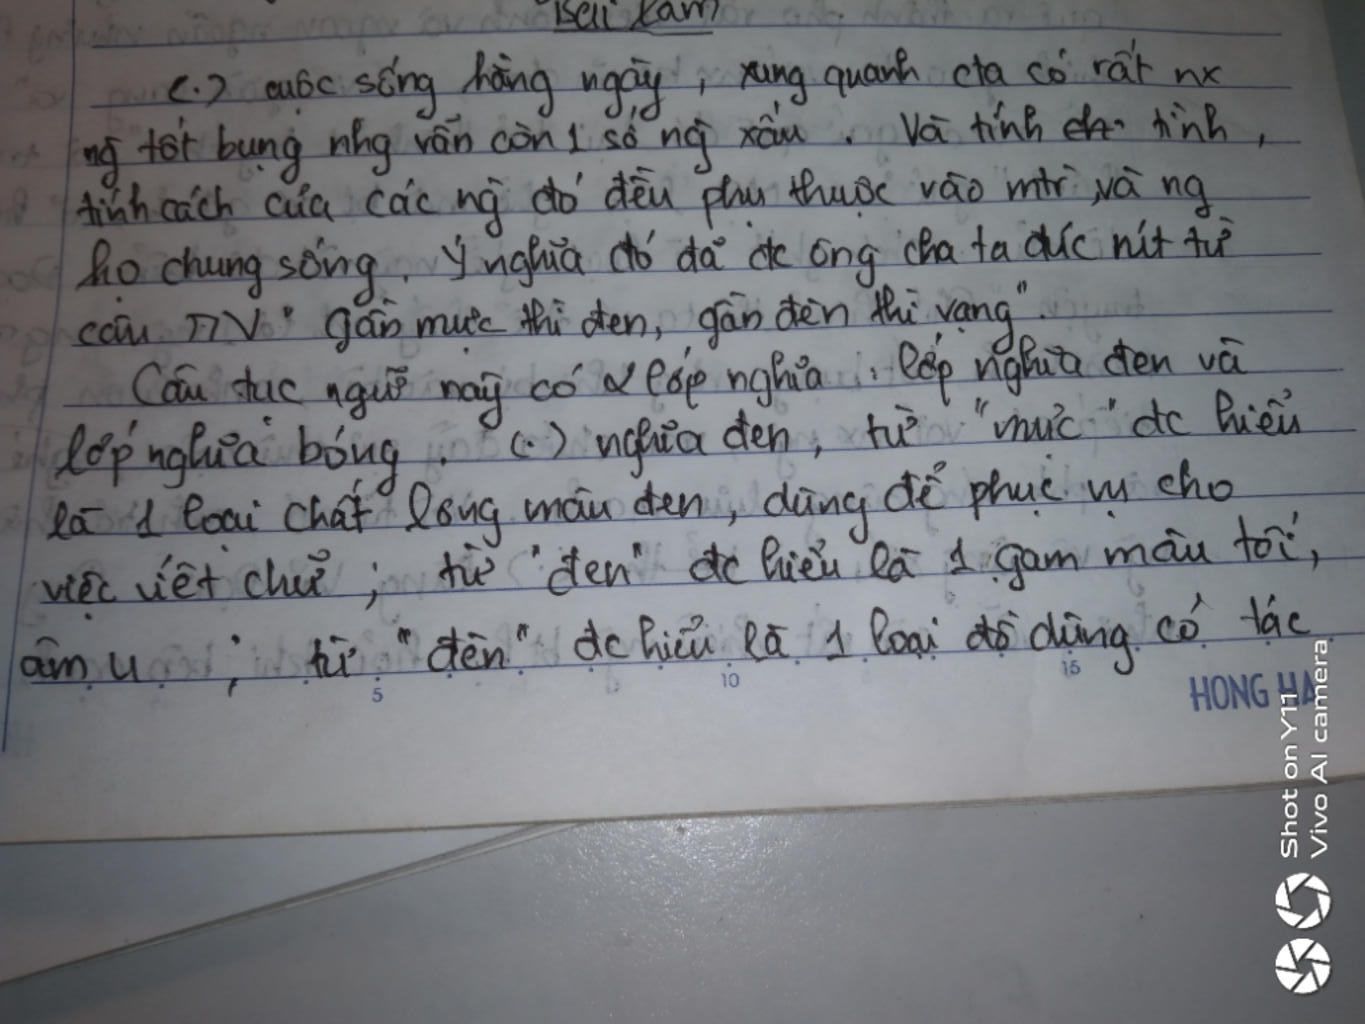 Bài Làm
(.) cuộc sống hằng ngày, xung quanh cta có rất nx
ng̀ tốt bụng nhg vẫn còn 1 số ng̀ xấu. Và tính tình,
tính cách của các ng̀ đó đều phụ thuộc vào mtr̀ và ng
họ chung sống. Ý nghĩa đó đã đc ông cha ta đúc rút từ
câu TNV "gần mực thì đen, gần đèn thì rạng".
Câu tục ngữ này có 2 lớp nghĩa: lớp nghĩa đen và
lớp nghĩa bóng. (.) nghĩa đen, từ "mực" đc hiểu
là 1 loại chất lỏng màu đen, dùng để phục vụ cho
việc viết chữ; từ "đen" đc hiểu là 1 gam màu tối,
âm u; từ "đèn" đc hiểu là 1 loại đồ dùng có tác
5 10 15
HONG HA
Shot on Y11
Vivo AI camera